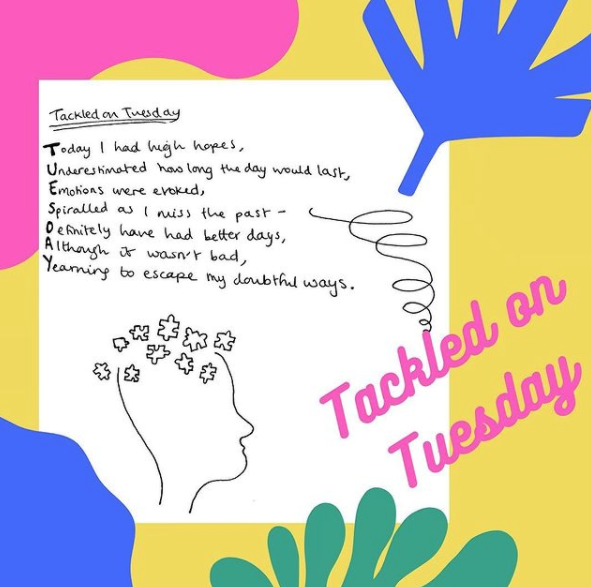 Tackled on Tuesday
Today I had high hopes,
Underestimated how long the day would last,
Emotions were evoked,
Spiralled as I miss the past -
Definitely have had better days,
Although it wasn't bad,
Yearning to escape my doubtful ways.
Tackled on
Tuesday